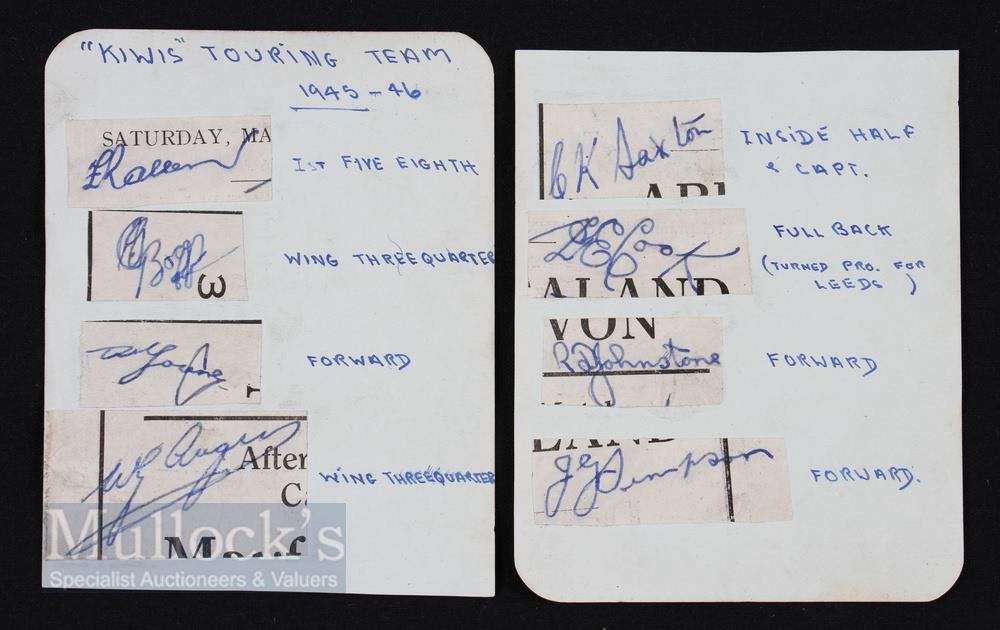 "KIWIS" TOURING TEAM
1945-46
SATURDAY, MA
1ST FIVE EIGHTH
WING THREEQUARTER
3
FORWARD
W G Argus
After
C
WING THREEQUARTER
Mullock's
Specialist Auctioneers & Valuers
C K Saxton
INSIDE HALF
& CAPT.
FULL BACK
(TURNED PRO. FOR
LEEDS)
ALAND
VON
Johnstone
FORWARD
LAND
J G Simpson
FORWARD.